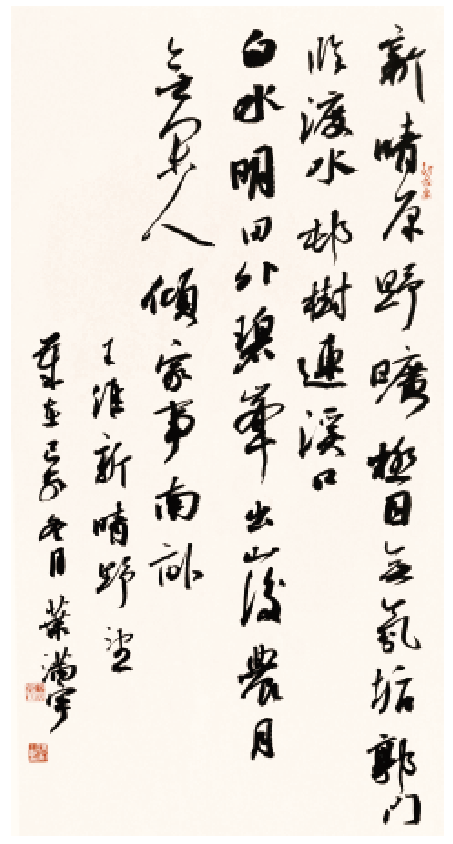 新晴原野曠極目無氛垢郭門
臨渡水邨樹連溪口
白水明田外碧峯出山後農月
無閑人傾家事南畝
王維新晴野望
歲在己亥冬月葉满宇